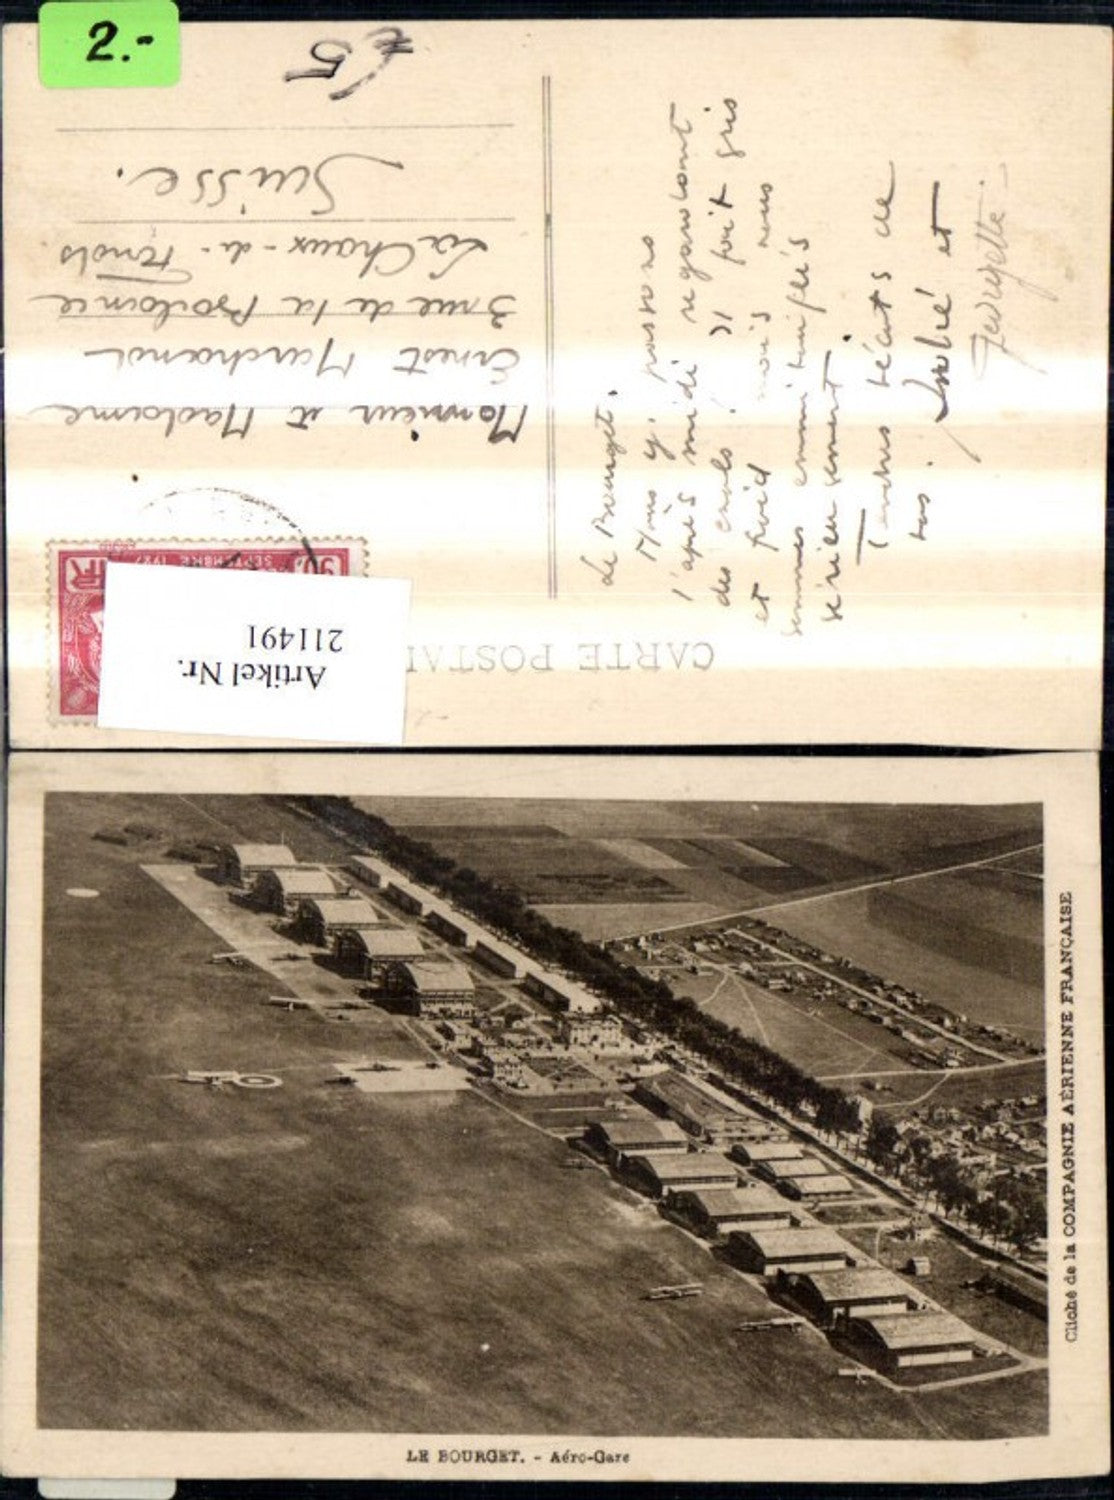 2.-
€5
CARTE POSTAL
Le Bourget.
Nous y passons
l'après midi regardant
des avions. Il fait gris
et froid mais nous
sommes emmitouflés
sérieusement
Tendres bécots de
André et
Georgette.
SEPTEMBRE 1927
90
Artikel Nr.
211491
Monsieur et Madame
Ernest Marchand
3 rue de la
La Chaux-de-Fonds
Suisse.
Cliché de la COMPAGNIE AÉRIENNE FRANÇAISE
LE BOURGET. - Aéro-Gare